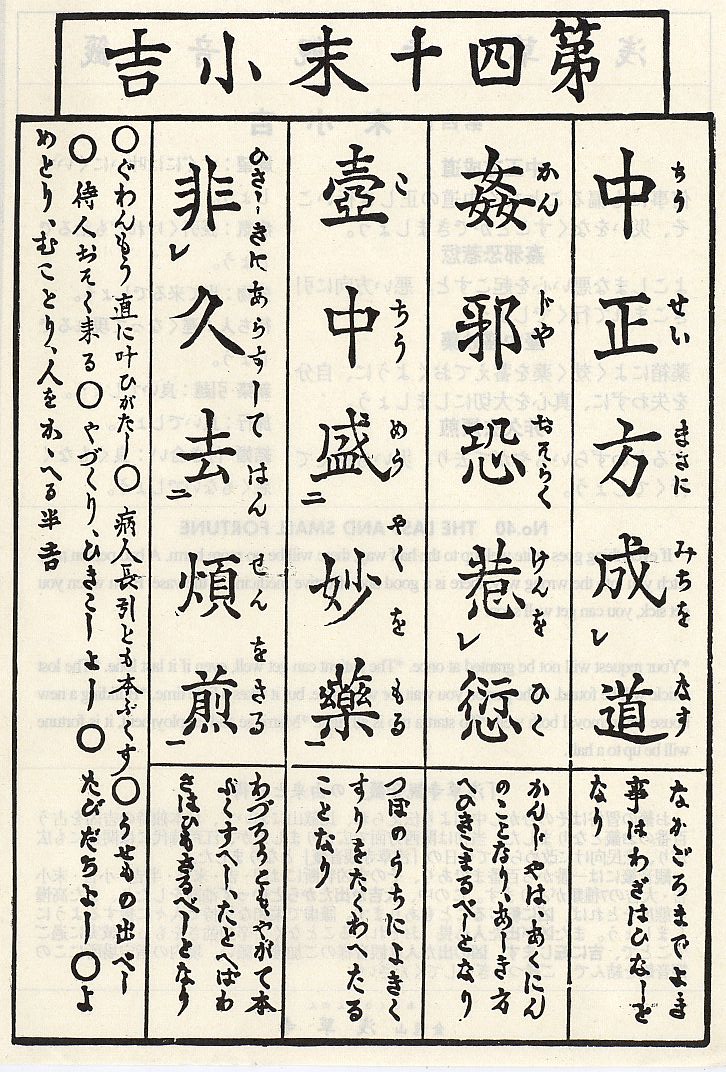 第四十末小吉
ちう せい まさに みちを なす
中正方成レ道
なかごろまでよき
事はわざはひなしと
なり
かん じや おそらく けんを ひく
姦邪恐惹レ愆
かんじやはあくにん
のことなり、あしき方
へひきこまるべしとなり
こ ちう めう やくを もる
壺中盛二妙藥一
つぼのうちによきく
すりをたくわへたる
ことなり
ひさしきにあらずして はん せんを さる
非レ久去二煩煎一
わづらうともやがて本
ぶくすべし、たとへばわ
ざはひもさるべしとなり
〇ぐわんもう直に叶ひがたし〇病人長引とも本ぶくす〇うせもの出べし
〇待人おそく来る〇やづくり、ひきこしよし〇たびだちよし〇よ
めとり、むことり、人をかゝへる半吉